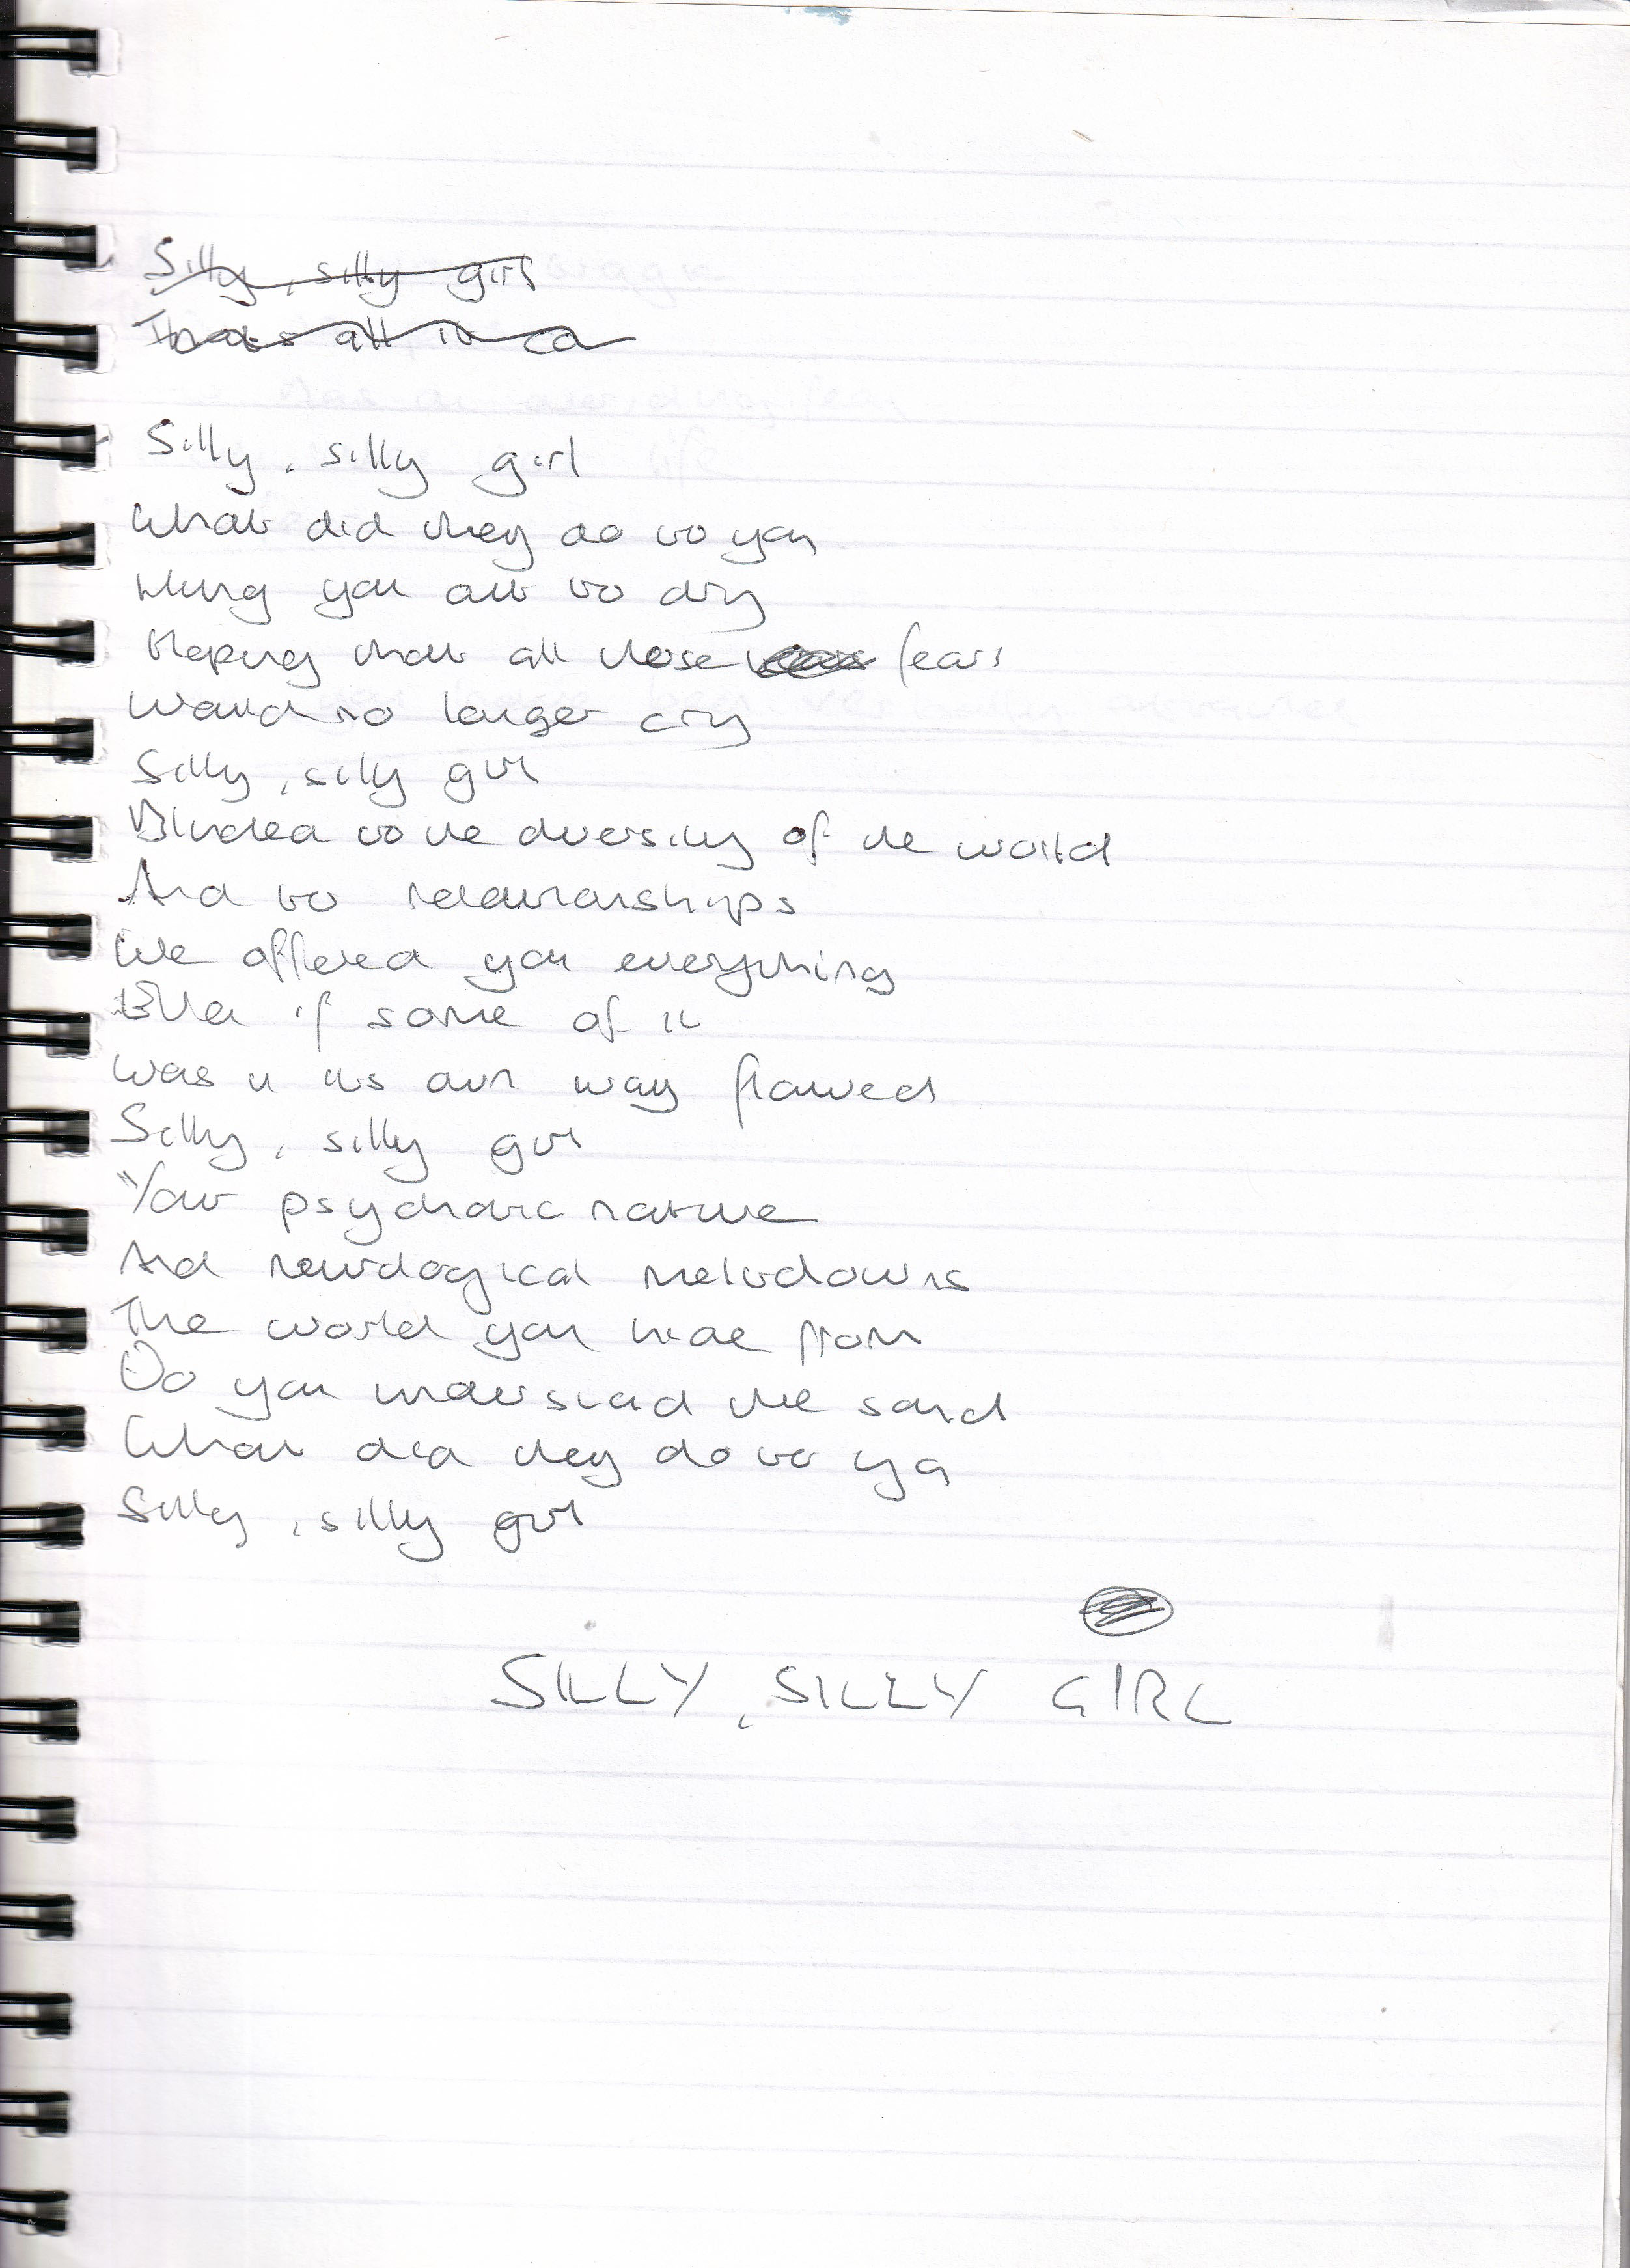 Silly, silly girl
Silly, silly girl
What did they do to you
Hung you out to dry
Hoping that all those fears
Would no longer cry
Silly, silly girl
Blinded to the diversity of the world
And to relationships
We offered you everything
Even if some of it
Was in its own way flawed
Silly, silly girl
Your psychotic nature
And neurological meltdowns
The world you hide from
Do you understand she said
What did they do to ya
Silly, silly girl
SILLY, SILLY GIRL